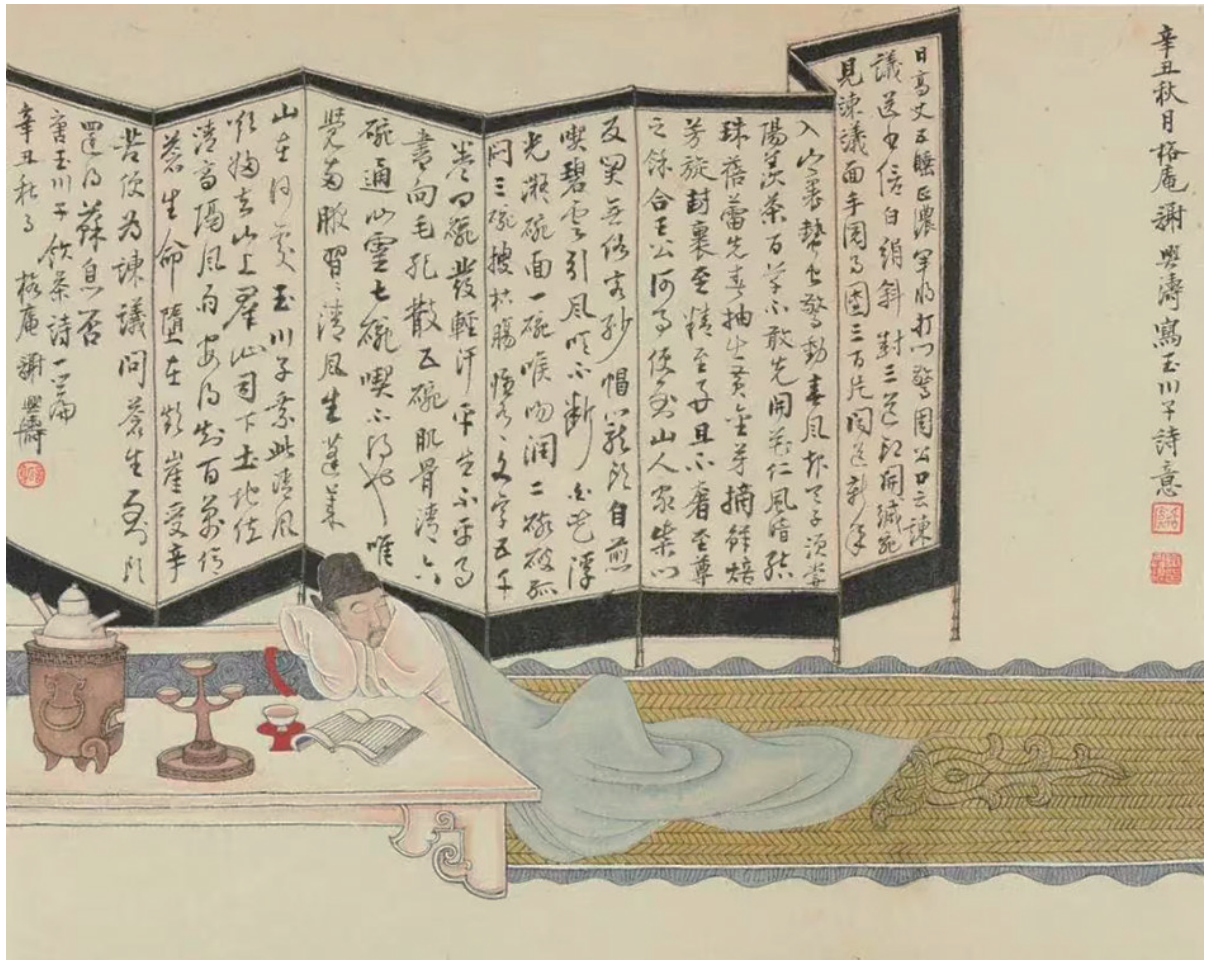 辛丑秋月格庵謝興濤寫玉川子詩意
日高丈五睡正濃軍將打門驚周公口云諫
議送書信白絹斜封三道印開緘宛
見諫議面手閱月團三百片聞道新年
入山裏蟄蟲驚動春風起天子須嘗
陽羨茶百草不敢先開花仁風暗結
珠蓓蕾先春抽出黃金芽摘鮮焙
芳旋封裹至精至好且不奢至尊
之餘合王公何事便到山人家柴門
反關無俗客紗帽籠頭自煎
喫碧雲引風吹不斷白花浮
光凝碗面一碗喉吻潤二碗破孤
悶三碗搜枯腸惟有文字五千
卷四碗發輕汗平生不平事
盡向毛孔散五碗肌骨清六
碗通仙靈七碗喫不得也唯
覺兩腋習〻清風生蓬萊
山在何處玉川子乘此清風
欲歸去山上羣仙司下土地位
清高隔風雨安得知百萬億
蒼生命墮在顛崖受辛
苦便為諫議問蒼生到頭
還得蘇息否
唐玉川子飲茶詩一篇
辛丑秋月 格庵謝興濤